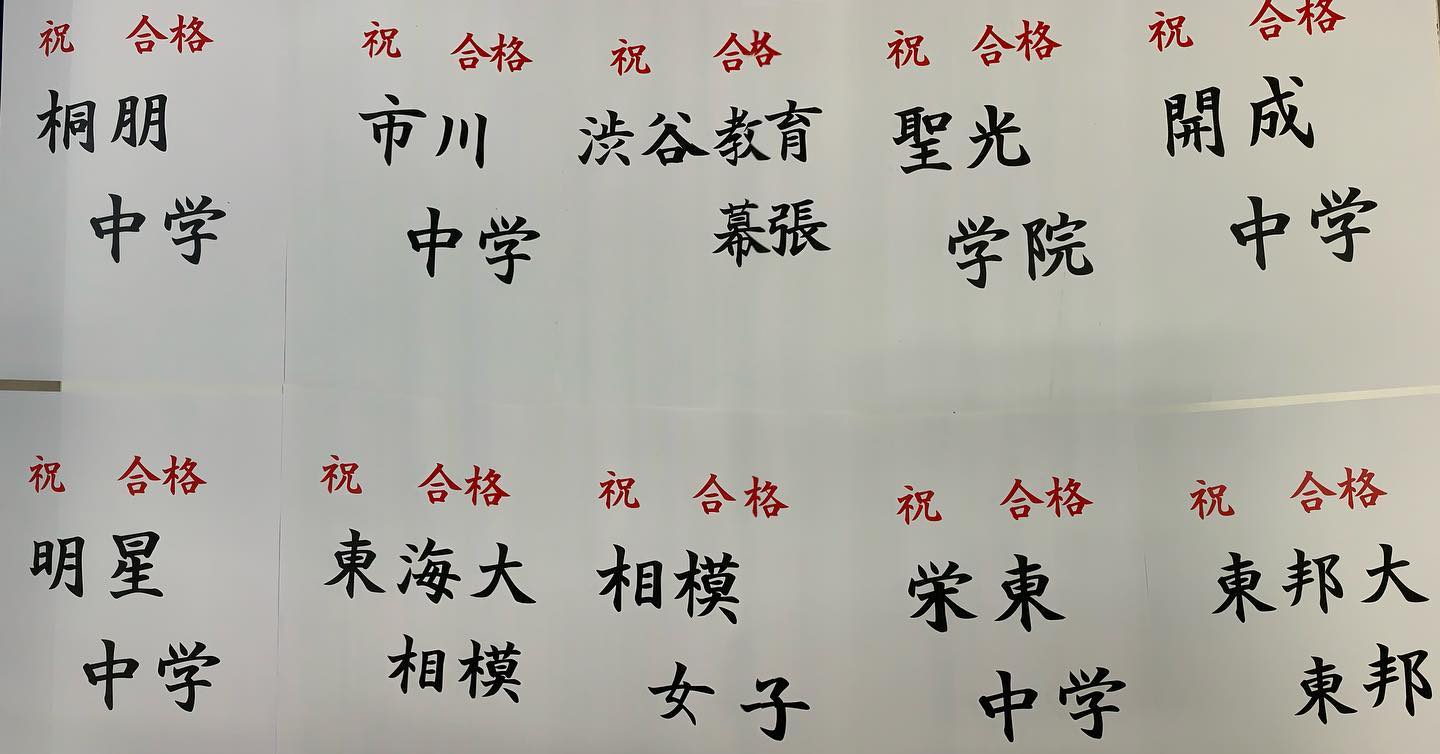 祝 合格
桐朋
中学
祝 合格
市川
中学
祝 合格
渋谷教育
幕張
祝 合格
聖光
学院
祝 合格
開成
中学
祝 合格
明星
中学
祝 合格
東海大
相模
祝 合格
相模
女子
祝 合格
栄東
中学
祝 合格
東邦大
東邦